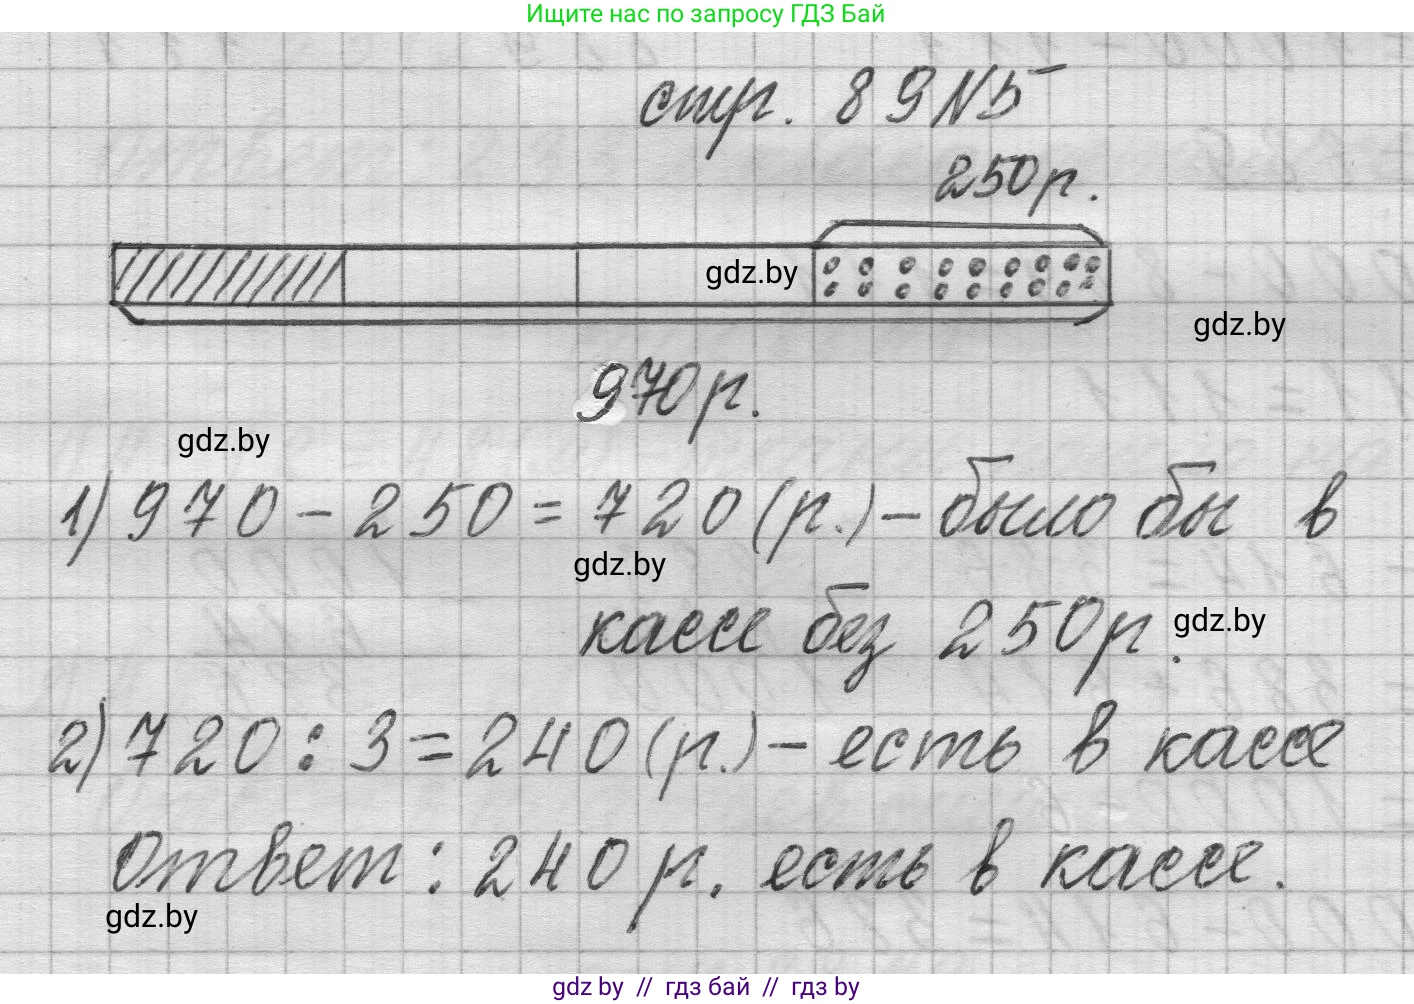 Ищите нас по запросу ГДЗ Бай
стр. 89 N5
250 р.
gdz.by
gdz.by
970 р.
gdz.by
1) 970 - 250 = 720 (р.) - было бы в
gdz.by
кассе без 250 р.
gdz.by
2) 720 : 3 = 240 (р.) - есть в кассе
Ответ: 240 р. есть в кассе.
gdz.by
gdz.by // гдз бай // гдз by